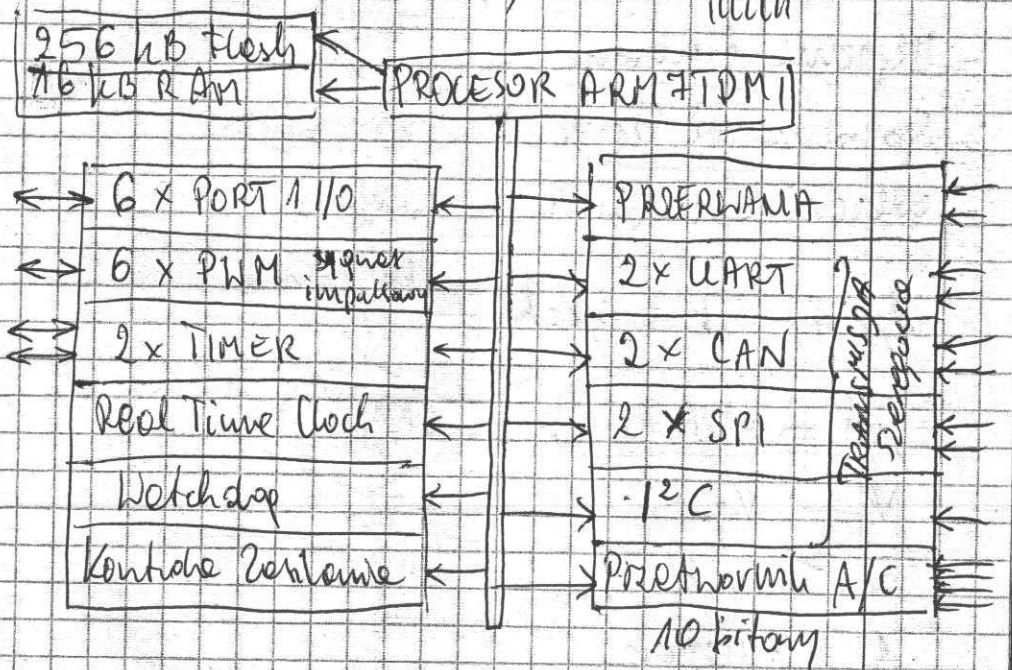 256 kB Flash
16 kB RAM
PROCESOR ARM7TDMI
6 x PORT 1 I/O
6 x PWM sygnał
impulsowy
2 x TIMER
Real Time Clock
Watchdog
Kontrola Zasilania
PRZERWANIA
2 x UART
2 x CAN
2 x SPI
I²C
Transmisja
Szeregowa
Przetwornik A/C
10 bitowy